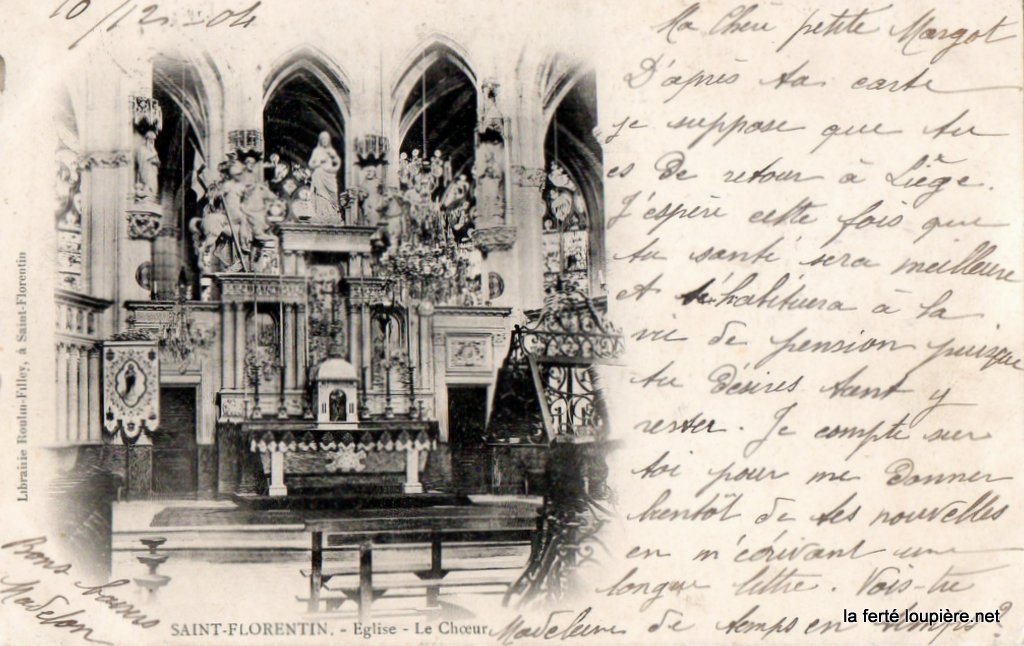 10/12-04
Ma Chère petite Margot
D'après ta carte
je suppose que tu
es de retour à Liège.
J'espère cette fois que
ta santé sera meilleure
et s'habituera à la
vie de pension puisque
tu désires tant y
rester. Je compte sur
toi pour me donner
bientôt de tes nouvelles
en m'écrivant une
longue lettre. Vois-tu
Madeleine de temps en temps?
Bons baisers
Madelon
Librairie Roulin-Filley, à Saint-Florentin
SAINT-FLORENTIN. - Eglise - Le Chœur
la ferté loupière.net